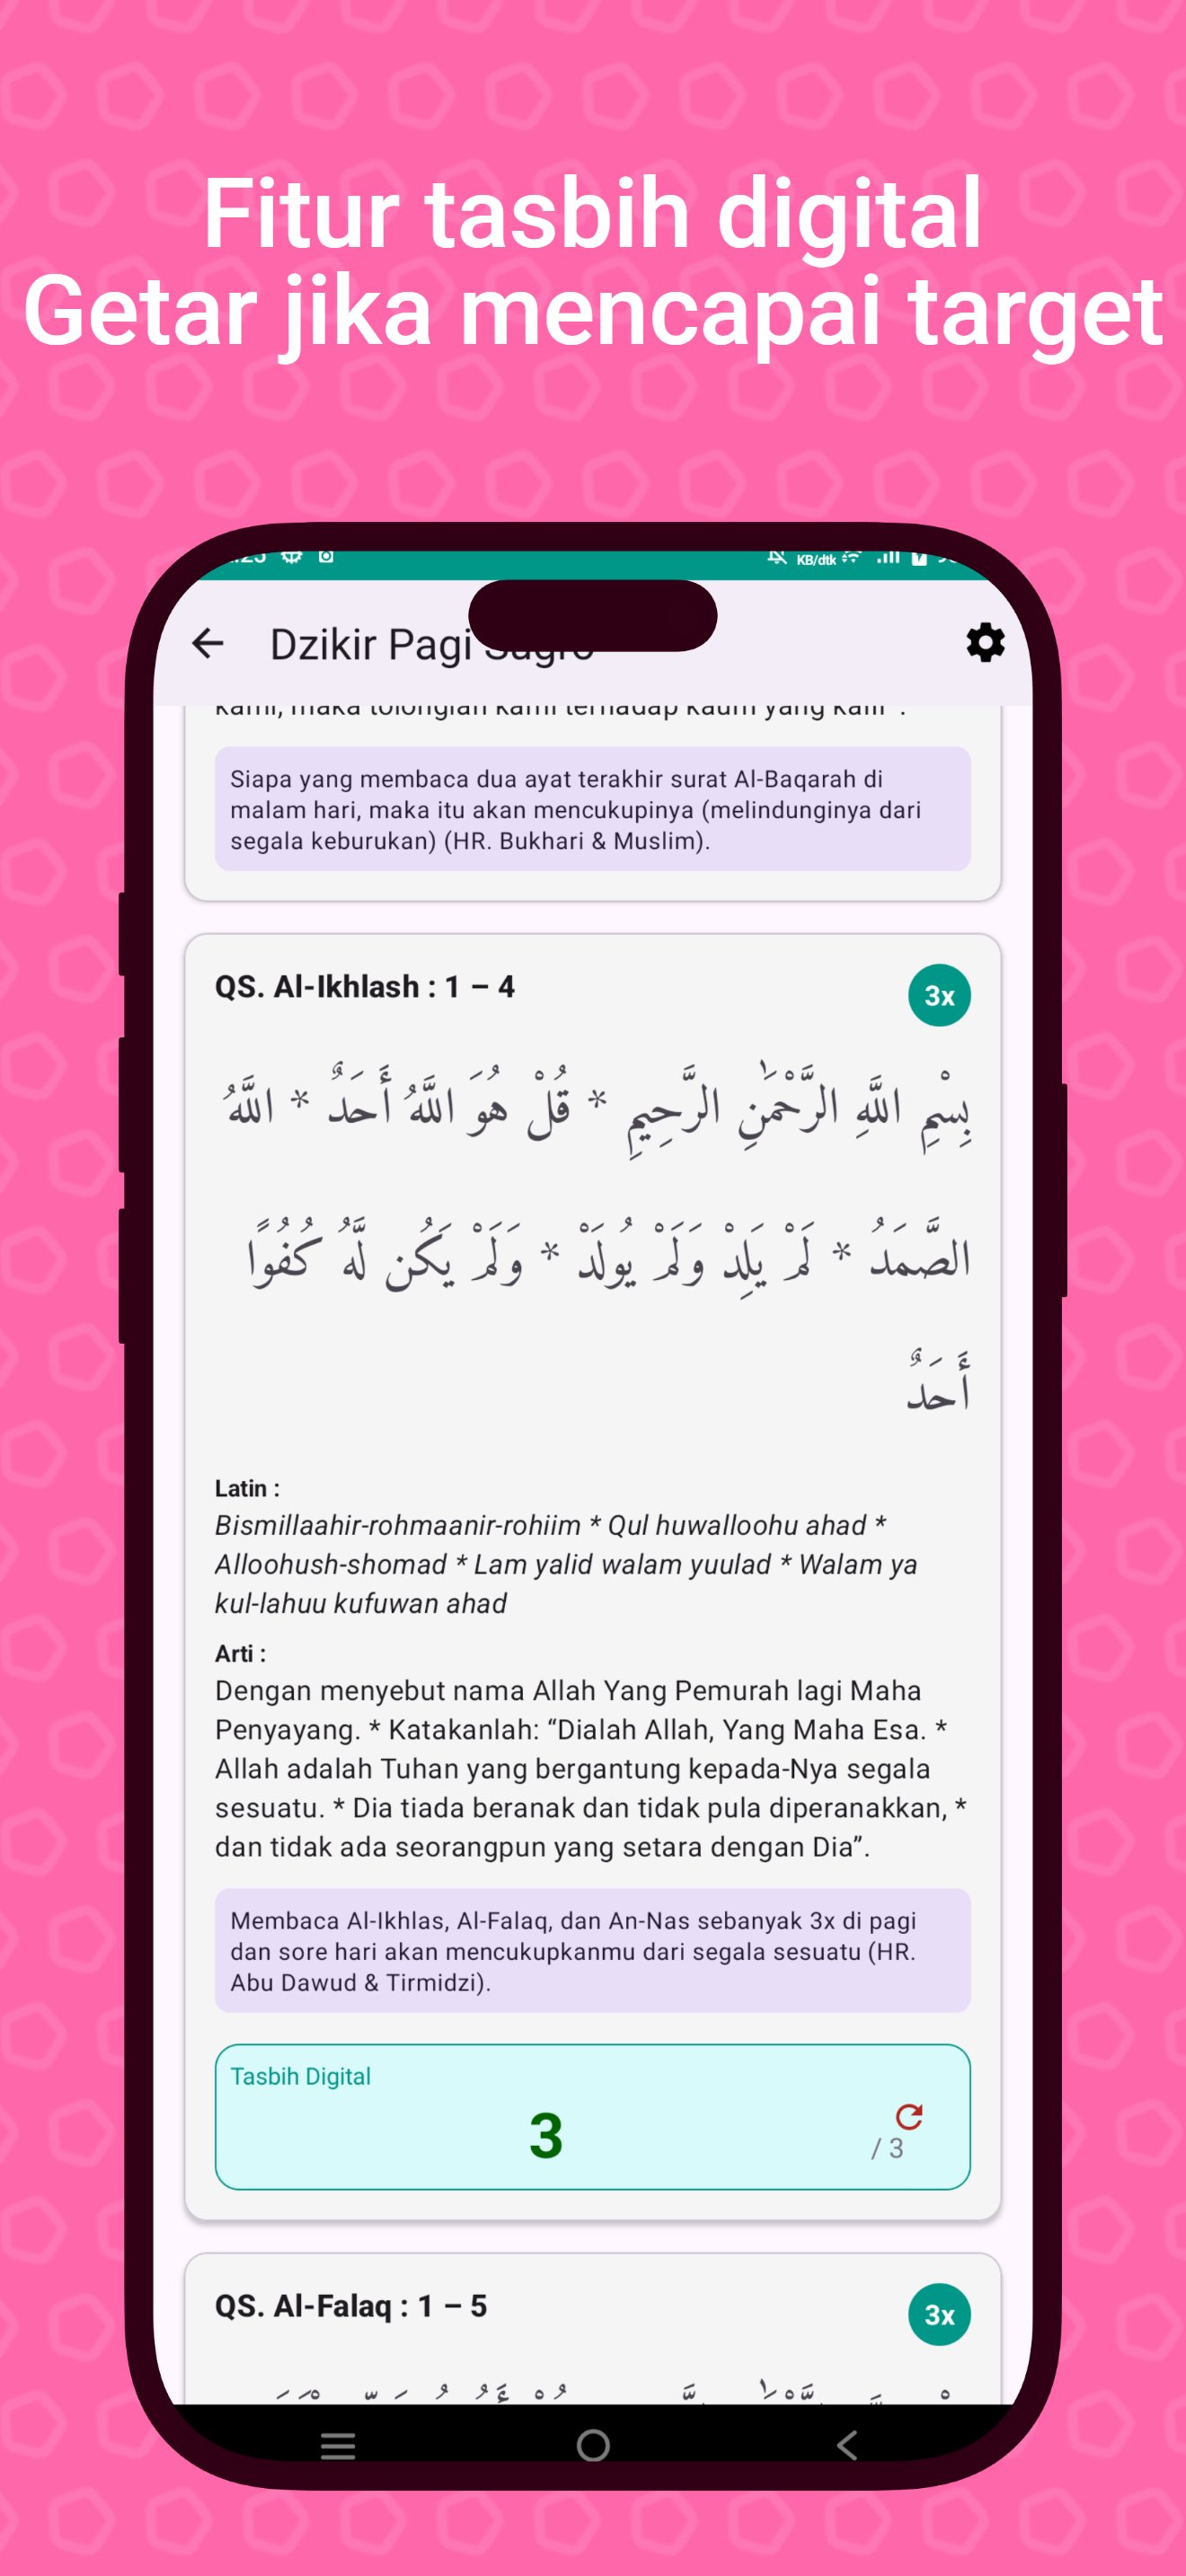 Fitur tasbih digital
Getar jika mencapai target
KB/dtk
Dzikir Pagi
kami, maka tolonglah kami terhadap kaum yang kafir".
Siapa yang membaca dua ayat terakhir surat Al-Baqarah di
malam hari, maka itu akan mencukupinya (melindunginya dari
segala keburukan) (HR. Bukhari & Muslim).
QS. Al-Ikhlash : 1 – 4
3x
بِسْمِ اللَّهِ الرَّحْمَٰنِ الرَّحِيمِ * قُلْ هُوَ اللَّهُ أَحَدٌ * اللَّهُ
الصَّمَدُ * لَمْ يَلِدْ وَلَمْ يُولَدْ * وَلَمْ يَكُن لَّهُ كُفُوًا
أَحَدٌ
Latin :
Bismillaahir-rohmaanir-rohiim * Qul huwalloohu ahad *
Alloohush-shomad * Lam yalid walam yuulad * Walam ya
kul-lahuu kufuwan ahad
Arti :
Dengan menyebut nama Allah Yang Pemurah lagi Maha
Penyayang. * Katakanlah: “Dialah Allah, Yang Maha Esa. *
Allah adalah Tuhan yang bergantung kepada-Nya segala
sesuatu. * Dia tiada beranak dan tidak pula diperanakkan, *
dan tidak ada seorangpun yang setara dengan Dia”.
Membaca Al-Ikhlas, Al-Falaq, dan An-Nas sebanyak 3x di pagi
dan sore hari akan mencukupkanmu dari segala sesuatu (HR.
Abu Dawud & Tirmidzi).
Tasbih Digital
3
/ 3
QS. Al-Falaq : 1 – 5
3x